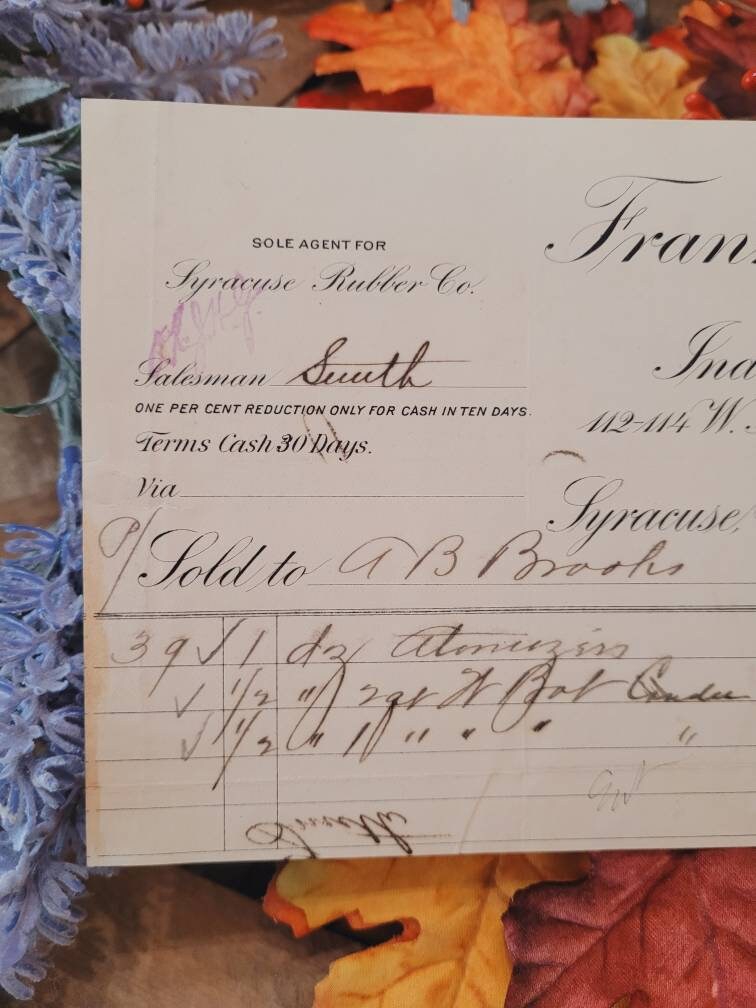 SOLE AGENT FOR
Syracuse Rubber Co.
Fran
Ind
112-114 W.
Syracuse,
Salesman Smith
ONE PER CENT REDUCTION ONLY FOR CASH IN TEN DAYS.
Terms Cash 30 Days.
Via
Sold to A B Brooks
39 ✓ 1 dz Atomizers
✓ 1/2 " 2qt W Bot
✓ 1/2 " 1 " " " "